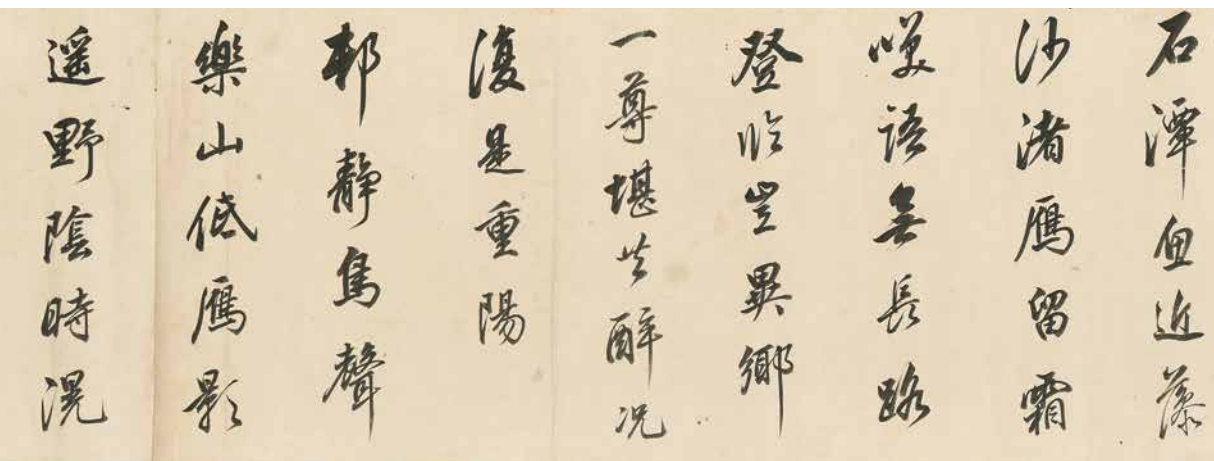 石潭魚近藻
沙渚鴈留霜
咲語無長路
登臨豈異鄉
一尊堪共醉况
復是重陽
邨靜鳥聲
樂山低鴈影
遥野陰時滉